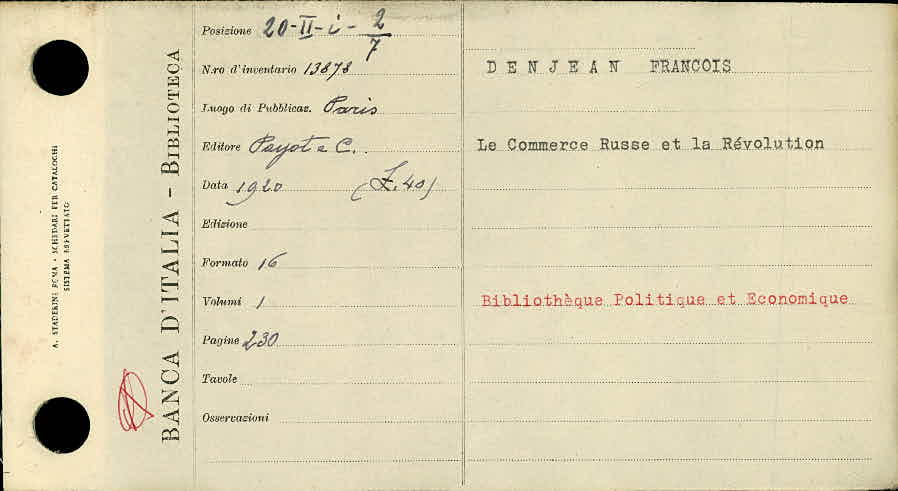 A. STADERINI ROMA - SCHEDARI PER CATALOGHI
SISTEMA BREVETTATO
BANCA D'ITALIA - BIBLIOTECA
Posizione 20-II-i- 2/7
N.ro d'inventario 13878
Luogo di Pubblicaz. Paris
Editore Payot e C.
Data 1920 (£.40)
Edizione
Formato 16
Volumi 1
Pagine 230
Tavole
Osservazioni
DENJEAN FRANCOIS
Le Commerce Russe et la Révolution
Bibliothèque Politique et Economique